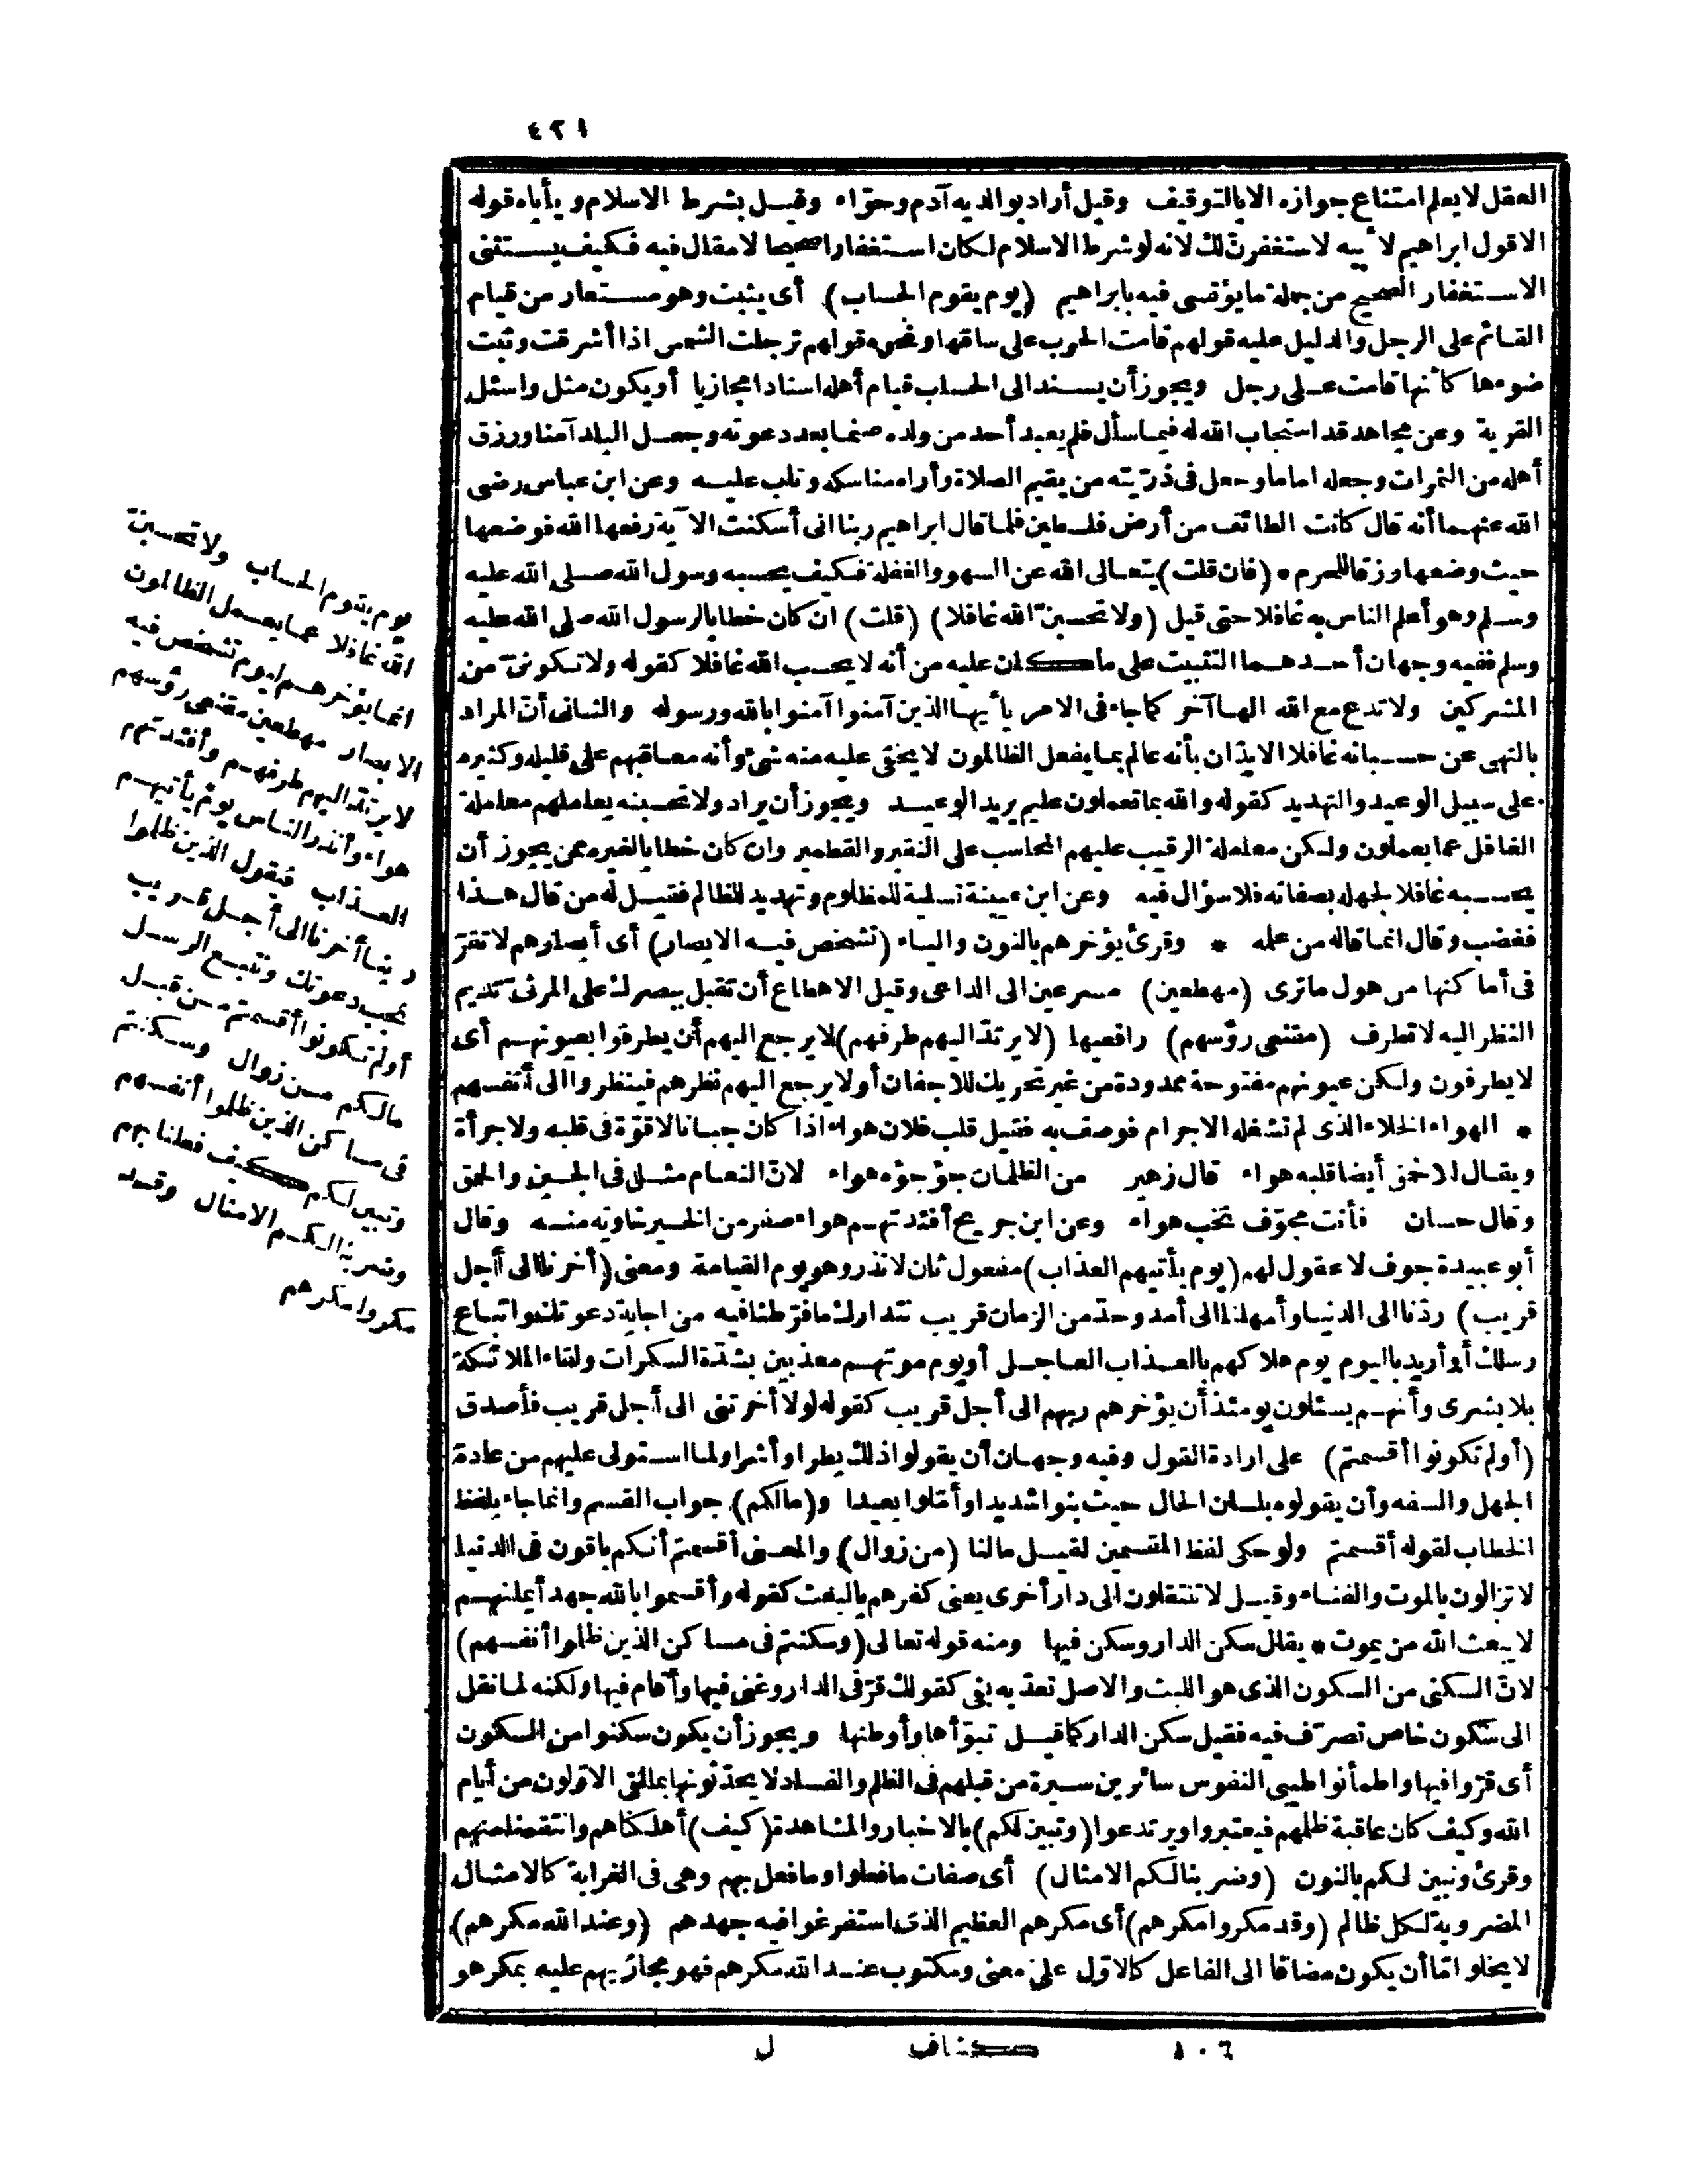 ٤٢١
العقل لا يعلم امتناع جوازه الا بالتوقيف وقيل أراد بوالديه آدم وحوّاء وقيل بشرط الاسلام ويأباه قوله
الا قول ابراهيم لأبيه لاستغفرنّ لك لانه لو شرط الاسلام لكان استغفارا صحيحا لا مقال فيه فكيف يستثنى
الاستغفار الصحيح من جملة ما يؤتسى فيه بابراهيم (يوم يقوم الحساب) أى يثبت وهو مستعار من قيام
القائم على الرجل والدليل عليه قولهم قامت الحرب على ساقها ونحوه قولهم ترجلت الشمس اذا أشرقت وثبت
ضوءها كأنها قامت على رجل ويجوز أن يسند الى الحساب قيام أهله اسنادا مجازيا أو يكون مثل واسئل
القرية وعن مجاهد قد استجاب الله له فيما سأل فلم يعبد أحد من ولده صنما بعد دعوته وجعل البلد آمنا ورزق
أهله من الثمرات وجعله اماما وجعل فى ذرّيته من يقيم الصلاة وأراه مناسكه وتاب عليه وعن ابن عباس رضى
الله عنهما أنه قال كانت الطائف من أرض فلسطين فلما قال ابراهيم ربنا انى أسكنت الآية رفعها الله فوضعها
حيث وضعها رزقا للحرم * (فان قلت) يتعالى الله عن السهو والغفلة فكيف يحسبه رسول الله صلى الله عليه
وسلم وهو أعلم الناس به غافلا حتى قيل (ولا تحسبنّ الله غافلا) (قلت) ان كان خطابا لرسول الله صلى الله عليه
وسلم ففيه وجهان أحدهما التثبيت على ما كان عليه من أنه لا يحسب الله غافلا كقوله ولا تكوننّ من
المشركين ولا تدع مع الله الها آخر كما جاء فى الامر يأيها الذين آمنوا آمنوا بالله ورسوله والثانى أنّ المراد
بالنهى عن حسبانه غافلا الايذان بأنه عالم بما يفعل الظالمون لا يخفى عليه منه شئ وأنه معاقبهم على قليله وكثيره
على سبيل الوعيد والتهديد كقوله والله بما تعملون عليم يريد الوعيد ويجوز أن يراد ولا تحسبنه يعاملهم معاملة
الغافل عما يعملون ولكن معاملة الرقيب عليهم المحاسب على النقير والقطمير وان كان خطابا لغيره ممن يجوز أن
يحسبه غافلا لجهله بصفاته فلا سؤال فيه وعن ابن عيينة تسلية للمظلوم وتهديد للظالم فقيل له من قال هذا
فغضب وقال انما قاله من علمه * وقرئ يؤخرهم بالنون والياء (تشخص فيه الابصار) أى أبصارهم لا تقرّ
فى أماكنها من هول ما ترى (مهطعين) مسرعين الى الداعى وقيل الاهطاع أن تقبل ببصرك على المرئىّ تديم
النظر اليه لا تطرف (مقنعى رؤسهم) رافعيها (لا يرتدّ اليهم طرفهم) لا يرجع اليهم أن يطرفوا بعيونهم أى
لا يطرفون ولكن عيونهم مفتوحة ممدودة من غير تحريك للاجفان أو لا يرجع اليهم نظرهم فينظروا الى أنفسهم
* الهواء الخلاء الذى لم تشغله الاجرام فوصف به فقيل قلب فلان هواء اذا كان جبانا لا قوّة فى قلبه ولا جرأة
ويقال للاحمق أيضا قلبه هواء قال زهير من الظلمان جؤجؤه هواء لانّ النعام مثل فى الجبن والحمق
وقال حسان فأنت مجوّف نخب هواء وعن ابن جريج أفئدتهم هواء صفر من الخير خاوية منه وقال
أبو عبيدة جوف لا عقول لهم (يوم يأتيهم العذاب) مفعول ثان لانذر وهو يوم القيامة ومعنى (أخرنا الى أجل
قريب) ردّنا الى الدنيا وأمهلنا الى أمد وحدّ من الزمان قريب نتدارك ما فرّطنا فيه من اجابة دعوتك واتباع
رسلك أو أريد باليوم يوم هلاكهم بالعذاب العاجل أو يوم موتهم معذبين بشدّة السكرات ولقاء الملائكة
بلا بشرى وأنهم يسئلون يومئذ أن يؤخرهم ربهم الى أجل قريب كقوله لولا أخرتنى الى أجل قريب فأصدق
(أولم تكونوا أقسمتم) على ارادة القول وفيه وجهان أن يقولوا ذلك بطرا وأشرا ولما استولى عليهم من عادة
الجهل والسفه وأن يقولوه بلسان الحال حيث بنوا شديدا وأمّلوا بعيدا و(مالكم) جواب القسم وانما جاء بلفظ
الخطاب لقوله أقسمتم ولو حكى لفظ المقسمين لقيل مالنا (من زوال) والمعنى أقسمتم أنكم باقون فى الدنيا
لا تزالون بالموت والفناء وقيل لا تنتقلون الى دار أخرى يعنى كفرهم بالبعث كقوله وأقسموا بالله جهد أيمانهم
لا يبعث الله من يموت * يقال سكن الدار وسكن فيها ومنه قوله تعالى (وسكنتم فى مساكن الذين ظلموا أنفسهم)
لانّ السكنى من السكون الذى هو اللبث والاصل تعدّيه بفى كقولك قرّ فى الدار وغنى فيها وأقام فيها ولكنه لما نقل
الى سكون خاص تصرّف فيه فقيل سكن الدار كما قيل تبوّأها وأوطنها ويجوز أن يكون سكنوا من السكون
أى قرّوا فيها واطمأنوا طيبى النفوس سائرين سيرة من قبلهم فى الظلم والفساد لا يحدّثونها بما لقى الاوّلون من أيام
الله وكيف كان عاقبة ظلمهم فيعتبروا ويرتدعوا (وتبين لكم) بالاخبار والمشاهدة (كيف) أهلكناهم وانتقمنا منهم
وقرئ ونبين لكم بالنون (وضربنا لكم الامثال) أى صفات ما فعلوا وما فعل بهم وهى فى الغرابة كالامثال
المضروبة لكل ظالم (وقد مكروا مكرهم) أى مكرهم العظيم الذى استفرغوا فيه جهدهم (وعند الله مكرهم)
لا يخلو امّا أن يكون مضافا الى الفاعل كالاوّل على معنى ومكتوب عند الله مكرهم فهو مجازيهم عليه بمكر هو
يوم يقوم الحساب ولا تحسبنّ
الله غافلا عما يعمل الظالمون
انما يؤخرهم ليوم تشخص فيه
الابصار مهطعين مقنعى رؤسهم
لا يرتدّ اليهم طرفهم وأفئدتهم
هواء وأنذر الناس يوم يأتيهم
العذاب فيقول الذين ظلموا
ربنا أخرنا الى أجل قريب
نجب دعوتك ونتبع الرسل
أولم تكونوا أقسمتم من قبل
مالكم من زوال وسكنتم
فى مساكن الذين ظلموا أنفسهم
وتبين لكم كيف فعلنا بهم
وضربنا لكم الامثال وقد
مكروا مكرهم
١٠٦ كشاف ل